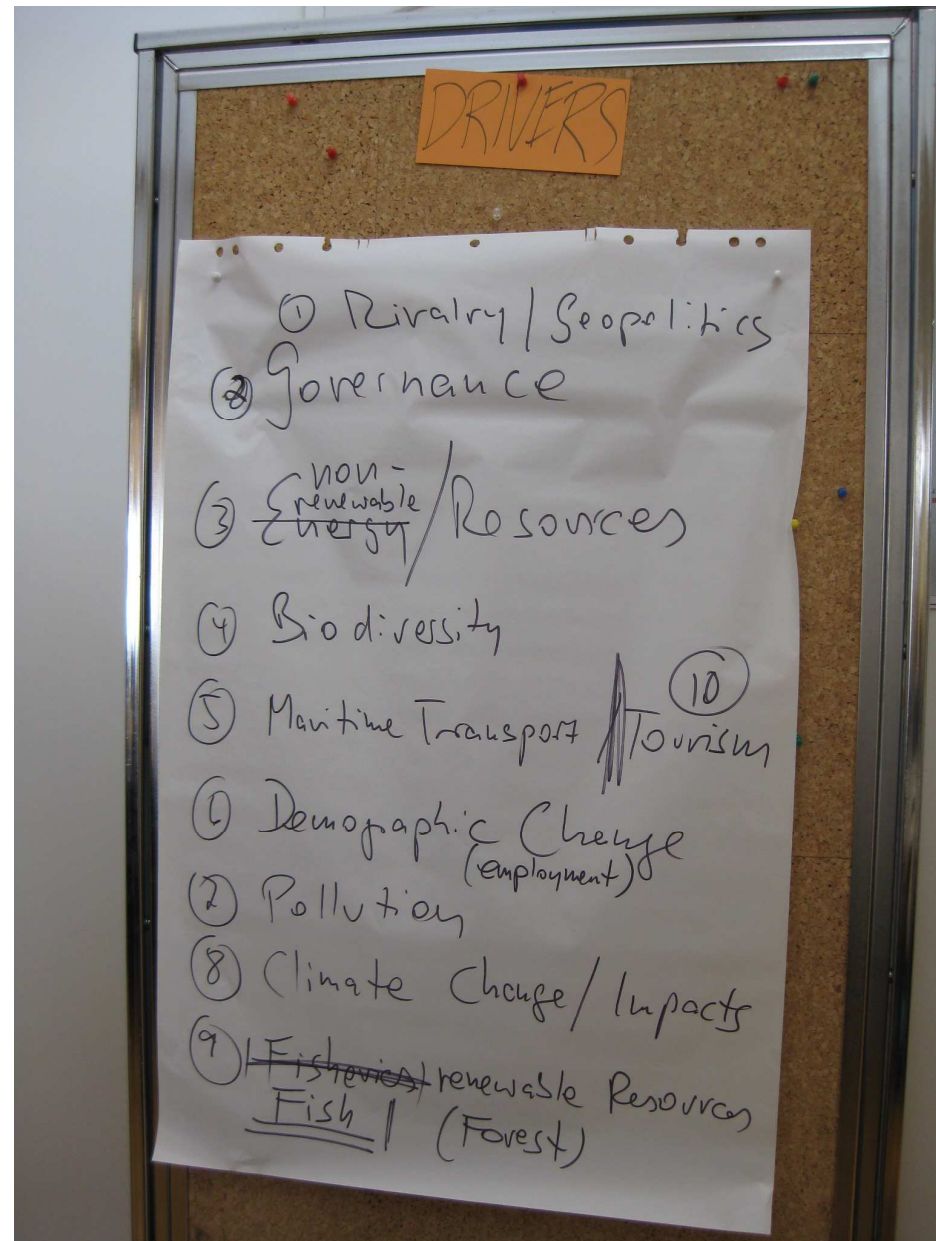 DRIVERS
① Rivalry / Geopolitics
② Governance
non-
renewable
③ Energy / Resources
④ Biodiversity
⑩
⑤ Maritime Transport / Tourism
⑥ Demographic Change
(employment)
⑦ Pollution
⑧ Climate Change / Impacts
⑨ Fisheries / renewable Resources
Fish / (Forest)